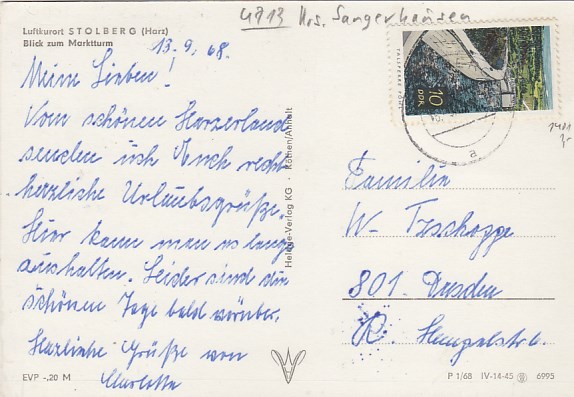 4713 Krs. Sangerhausen
Luftkurort STOLBERG (Harz)
Blick zum Marktturm
13.9.68.
Meine Lieben!
Vom schönen Harzerland
senden ich Euch recht
herzliche Urlaubsgrüße.
Hier kann man es lange
aushalten. Leider sind die
schönen Tage bald vorüber.
Herzliche Grüße von
Charlotte
EVP -,20 M
Heldge-Verlag KG Köthen/Anhalt
TALSPERRE PÖHL
10 DDR
a
Familie
W. Tzschoppe
801 Dresden
P 1/68 IV-14-45 6995